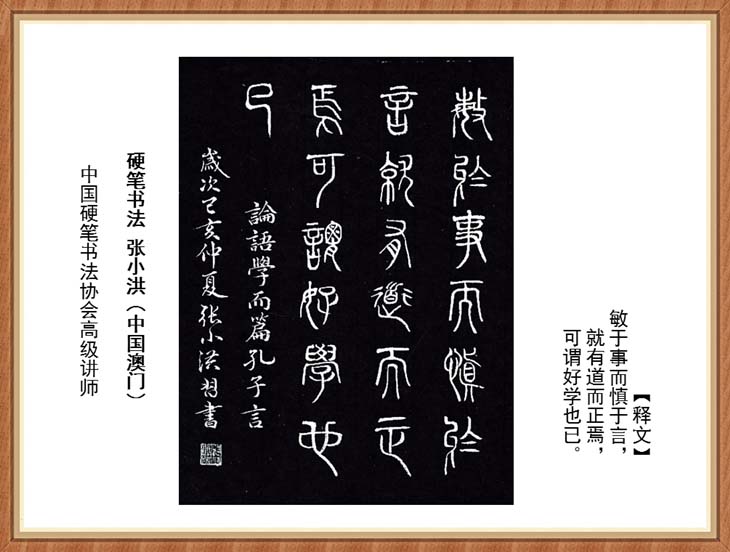 【释文】
敏于事而慎于言，
就有道而正焉，
可谓好学也已。
敏於事而慎於
言就有道而正
焉可謂好學也
已
論語學而篇孔子言
歲次己亥仲夏张小洪習書
硬笔书法 张小洪（中国澳门）
中国硬笔书法协会高级讲师